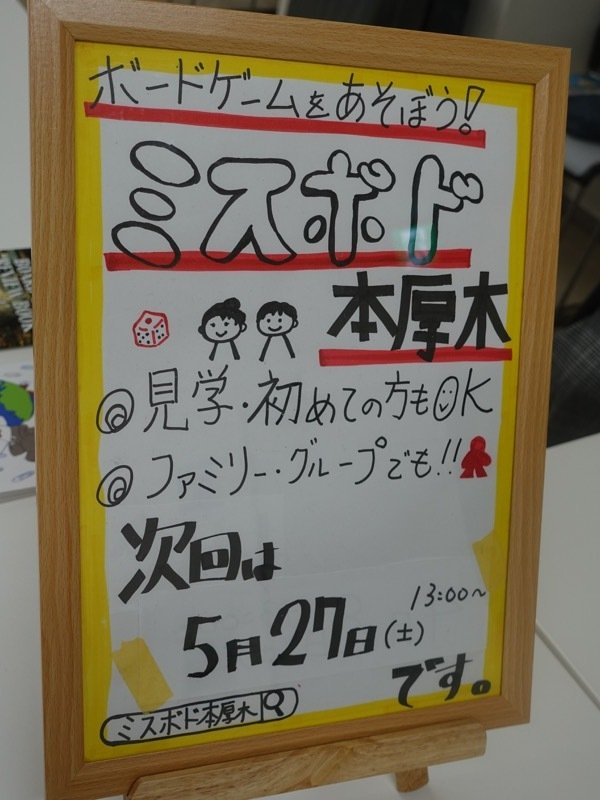 ボードゲームをあそぼう!
ミスボド
本厚木
◎見学・初めての方もOK
◎ファミリー・グループでも!!
次回は
13:00~
5月27日(土)
です。
ミスボド本厚木